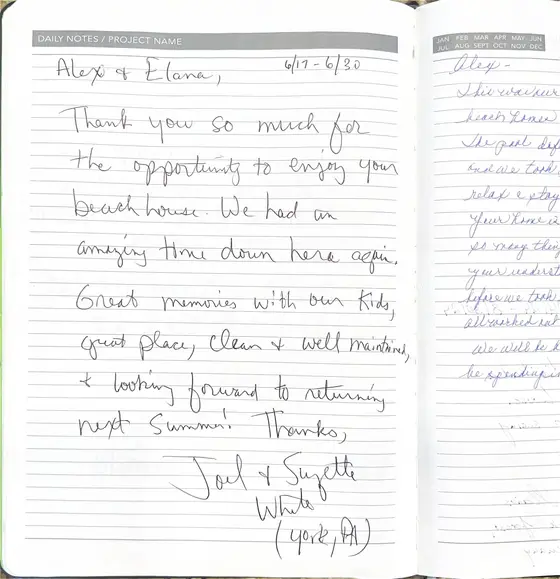 DAILY NOTES / PROJECT NAME
Alex & Elana, 6/17 - 6/30
Thank you so much for
the opportunity to enjoy your
beach house. We had an
amazing time down here again.
Great memories with our kids,
great place, clean & well maintained,
& looking forward to returning
next Summer! Thanks,
Joel & Suzette
White
(York, PA)
JAN FEB MAR APR MAY JUN
JUL AUG SEPT OCT NOV DEC
Alex -
This was our
beach home
The pool
and we took
relax & stay
Your home is
so many thin
your underst
before we took
all worked out
We will be
be spending